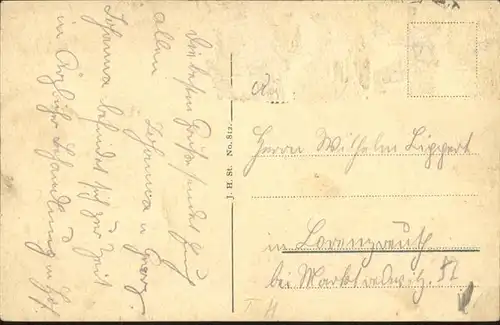 Die besten Grüße sendet Euch
allen
Johanna u Georg.
Johanna befindet sich zur Zeit
in ärztlicher Behandlung in Hof.
J. H. St. No. 812.
Herrn Wilhelm Lippert
in Lorenzreuth
bei Marktredwitz. 87